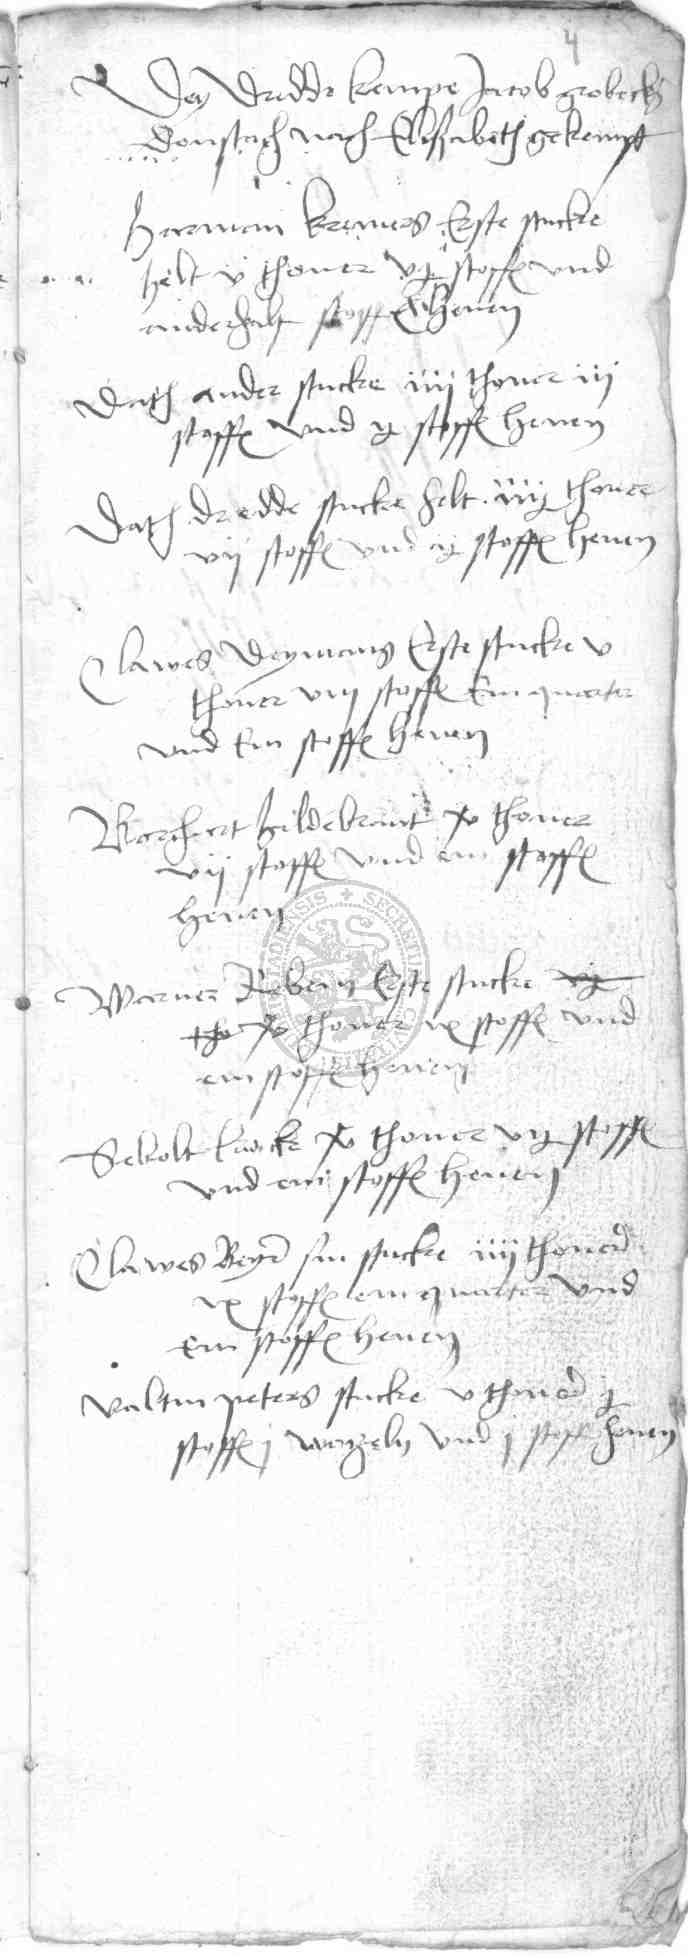 4
Dey dredde kempe Jacob grobecks
donstach nach Elisabeth gekempt
Harman kremers Erste stucke
helt v thoner stoffe vnd
anderhalff stoffe heven
Dath ander stucke iiij thoner iij
stoffe vnd ij stoffe heven
Dath dredde stucke helt iiij thoner
vij stoffe vnd ij stoffe heven
Clawes Deymans Erste stucke v
thoner viij stoffe Ein quarter
vnd Ein stoffe heven
Borchert hildebrant thoner
vij stoffe vnd ein stoffe
heven
Warner Erste stucke
tho thoner ix stoffe vnd
ein stoffe heven
Sebolt thoner vij stoffe
vnd ein stoffe heven
Clawes Beyer sin stucke iiij thoner
ix stoffe ein quarter vnd
Ein stoffe heven
Valtin peters stucke v thoner ij
stoffe j vnd j stoff heven
SECRETUM